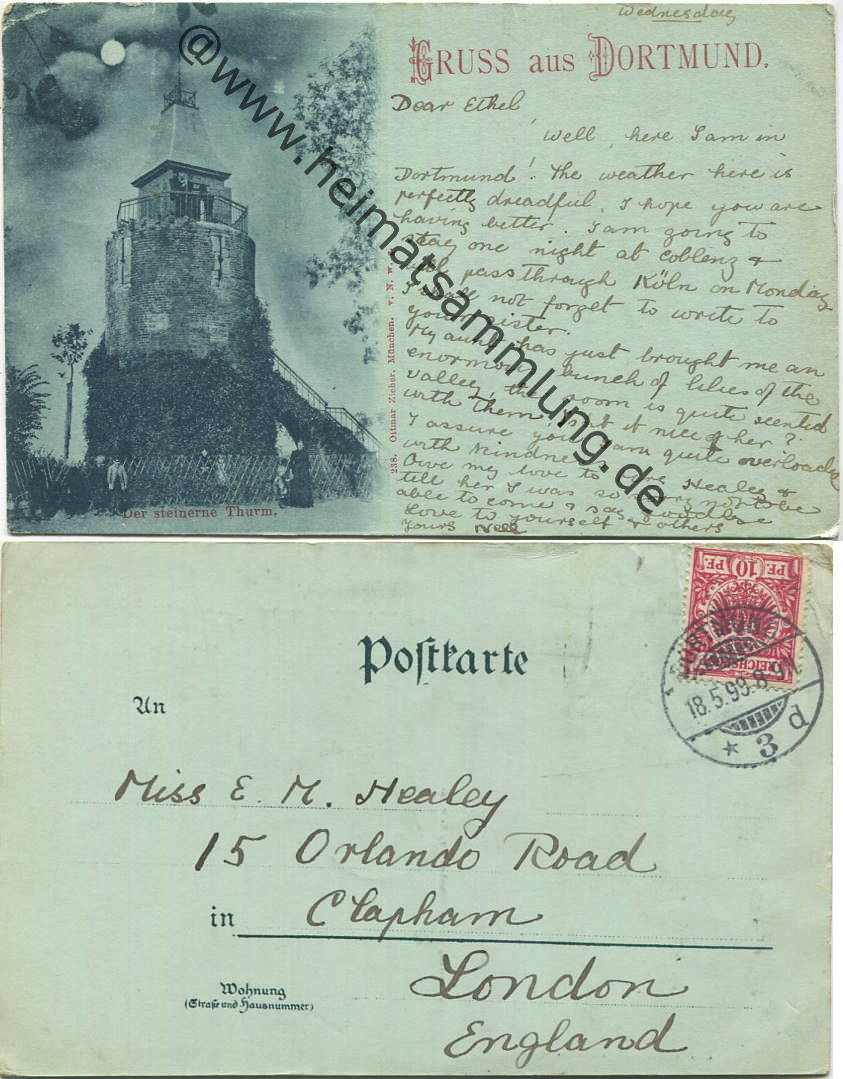 Wednesday
GRUSS aus DORTMUND.
Dear Ethel
Well, here I am in
Dortmund! The weather here is
perfectly dreadful, I hope you are
having better. I am going to
stay one night at Coblenz &
pass through Köln on Monday
not forget to write to
your sister.
My aunt has just brought me an
enormous bunch of lilies of the
valley, the room is quite scented
with them. Isn't it nice of her?
I assure you I am quite overloaded
with kindness.
Give my love to Healey &
tell her I was so sorry not to be
able to come & say
Love to yourself & others
Yours Nell
Der steinerne Thurm.
238. Ottmar Zieher, München. V. N. w.
@www.heimatsammlung.de
Postkarte
An
Miss E. M. Healey
15 Orlando Road
in Clapham
London
England
Wohnung
(Straße und Hausnummer)
10 PF.
REICHSPOST
DORTMUND
18.5.99.8-9V.
* 3 d